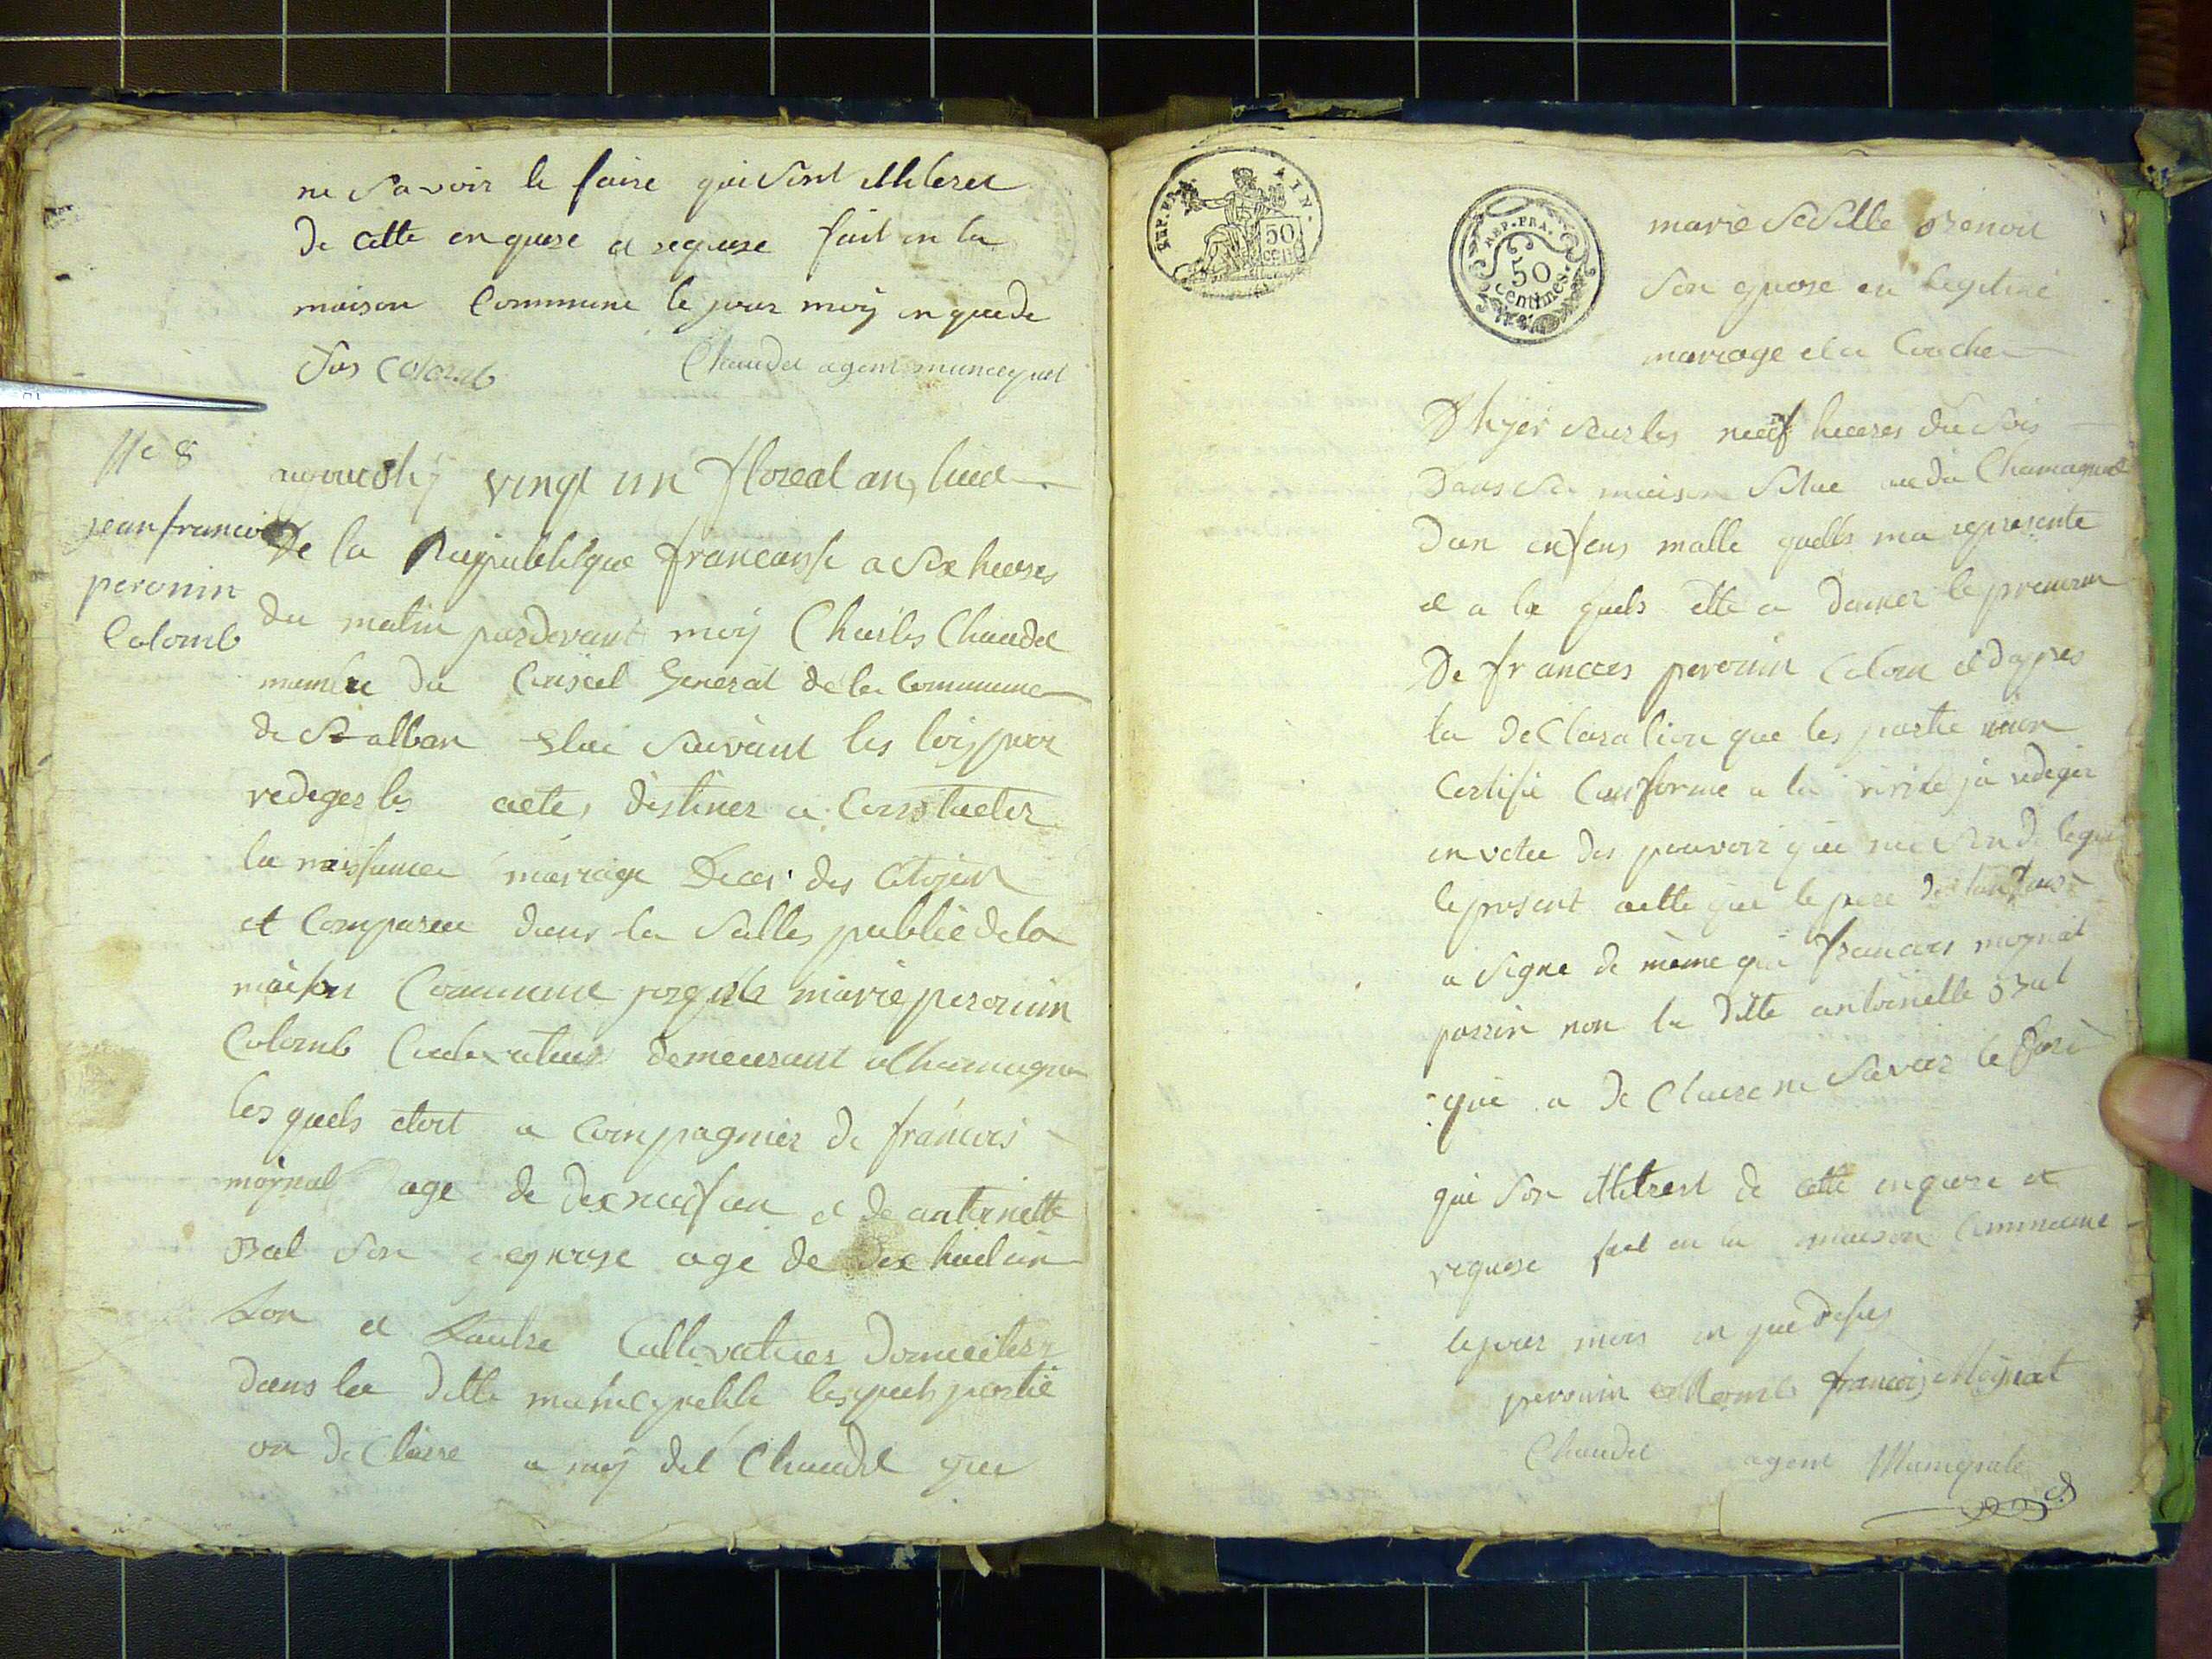 ne Savoir le faire qui Sont illiteres
de cette enquise et requise fait en la
maison Commune le jour moy en que de
sus Colomb Chaudet agent municipal
N° 8
jean francois
peronin
Colomb
aujourdhuy vingt un floreal an huit
De la Republique francoisse a Six heures
du matin pardevant moy Charles Chaudet
membre du Conseil General de la Commune
de St alban elue Suivant les loix pour
rediger les acte, destiner a Constaeter
la naissance mariage Deces des Citojen
et Comparue dans la Salles publie de la
maison Commune josephe marie peronin
Colomb Cultivateur demeurant a Chamagna
les quels etoit a Compagnier de francois
moynat age de dix neuf an et de antoinette
Bal Son epouse age de dix huit an
Lon et Lautre Cultivatuer domicilier
dans la ditte municipalite les quels partie
on de Claire a moy dit Chaudet que
REP. FRA. 50 cent. TIN.
REP. FRA.
50
centimes.
marie Benoit
Son epouse en Legitime
mariage et a Coucher
D hyer Sur les neuf heures du Soir
Dans Sa maison Situe audit Chamagnat
Dun enfens malle quells ma representé
et a le quels elle a donner le prenom
De francois peronin Colom et dapres
la de Claration que les partie mon
Certifie Conforme a la verite jai rediger
en vetu des pouvoir que me Son de legué
le present aette que le pere de lenfans
a Signe de même que francois moynat
parrin non la ditte antoinette Bal
que a de Claire ne Savoir le faire
qui Son illitrest de cette enquise et
requise fait en la maison Commune
le jour mois en que desus
peronin Colomb francois Moynat
Chaudet agent Municipale